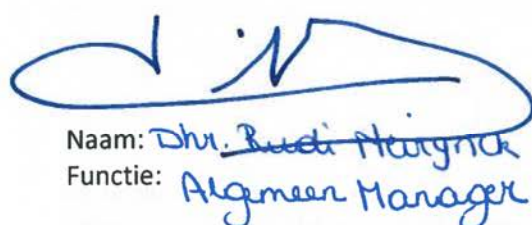 Naam: Dhr. Rudi Meirynck
Functie: Algemeen Manager